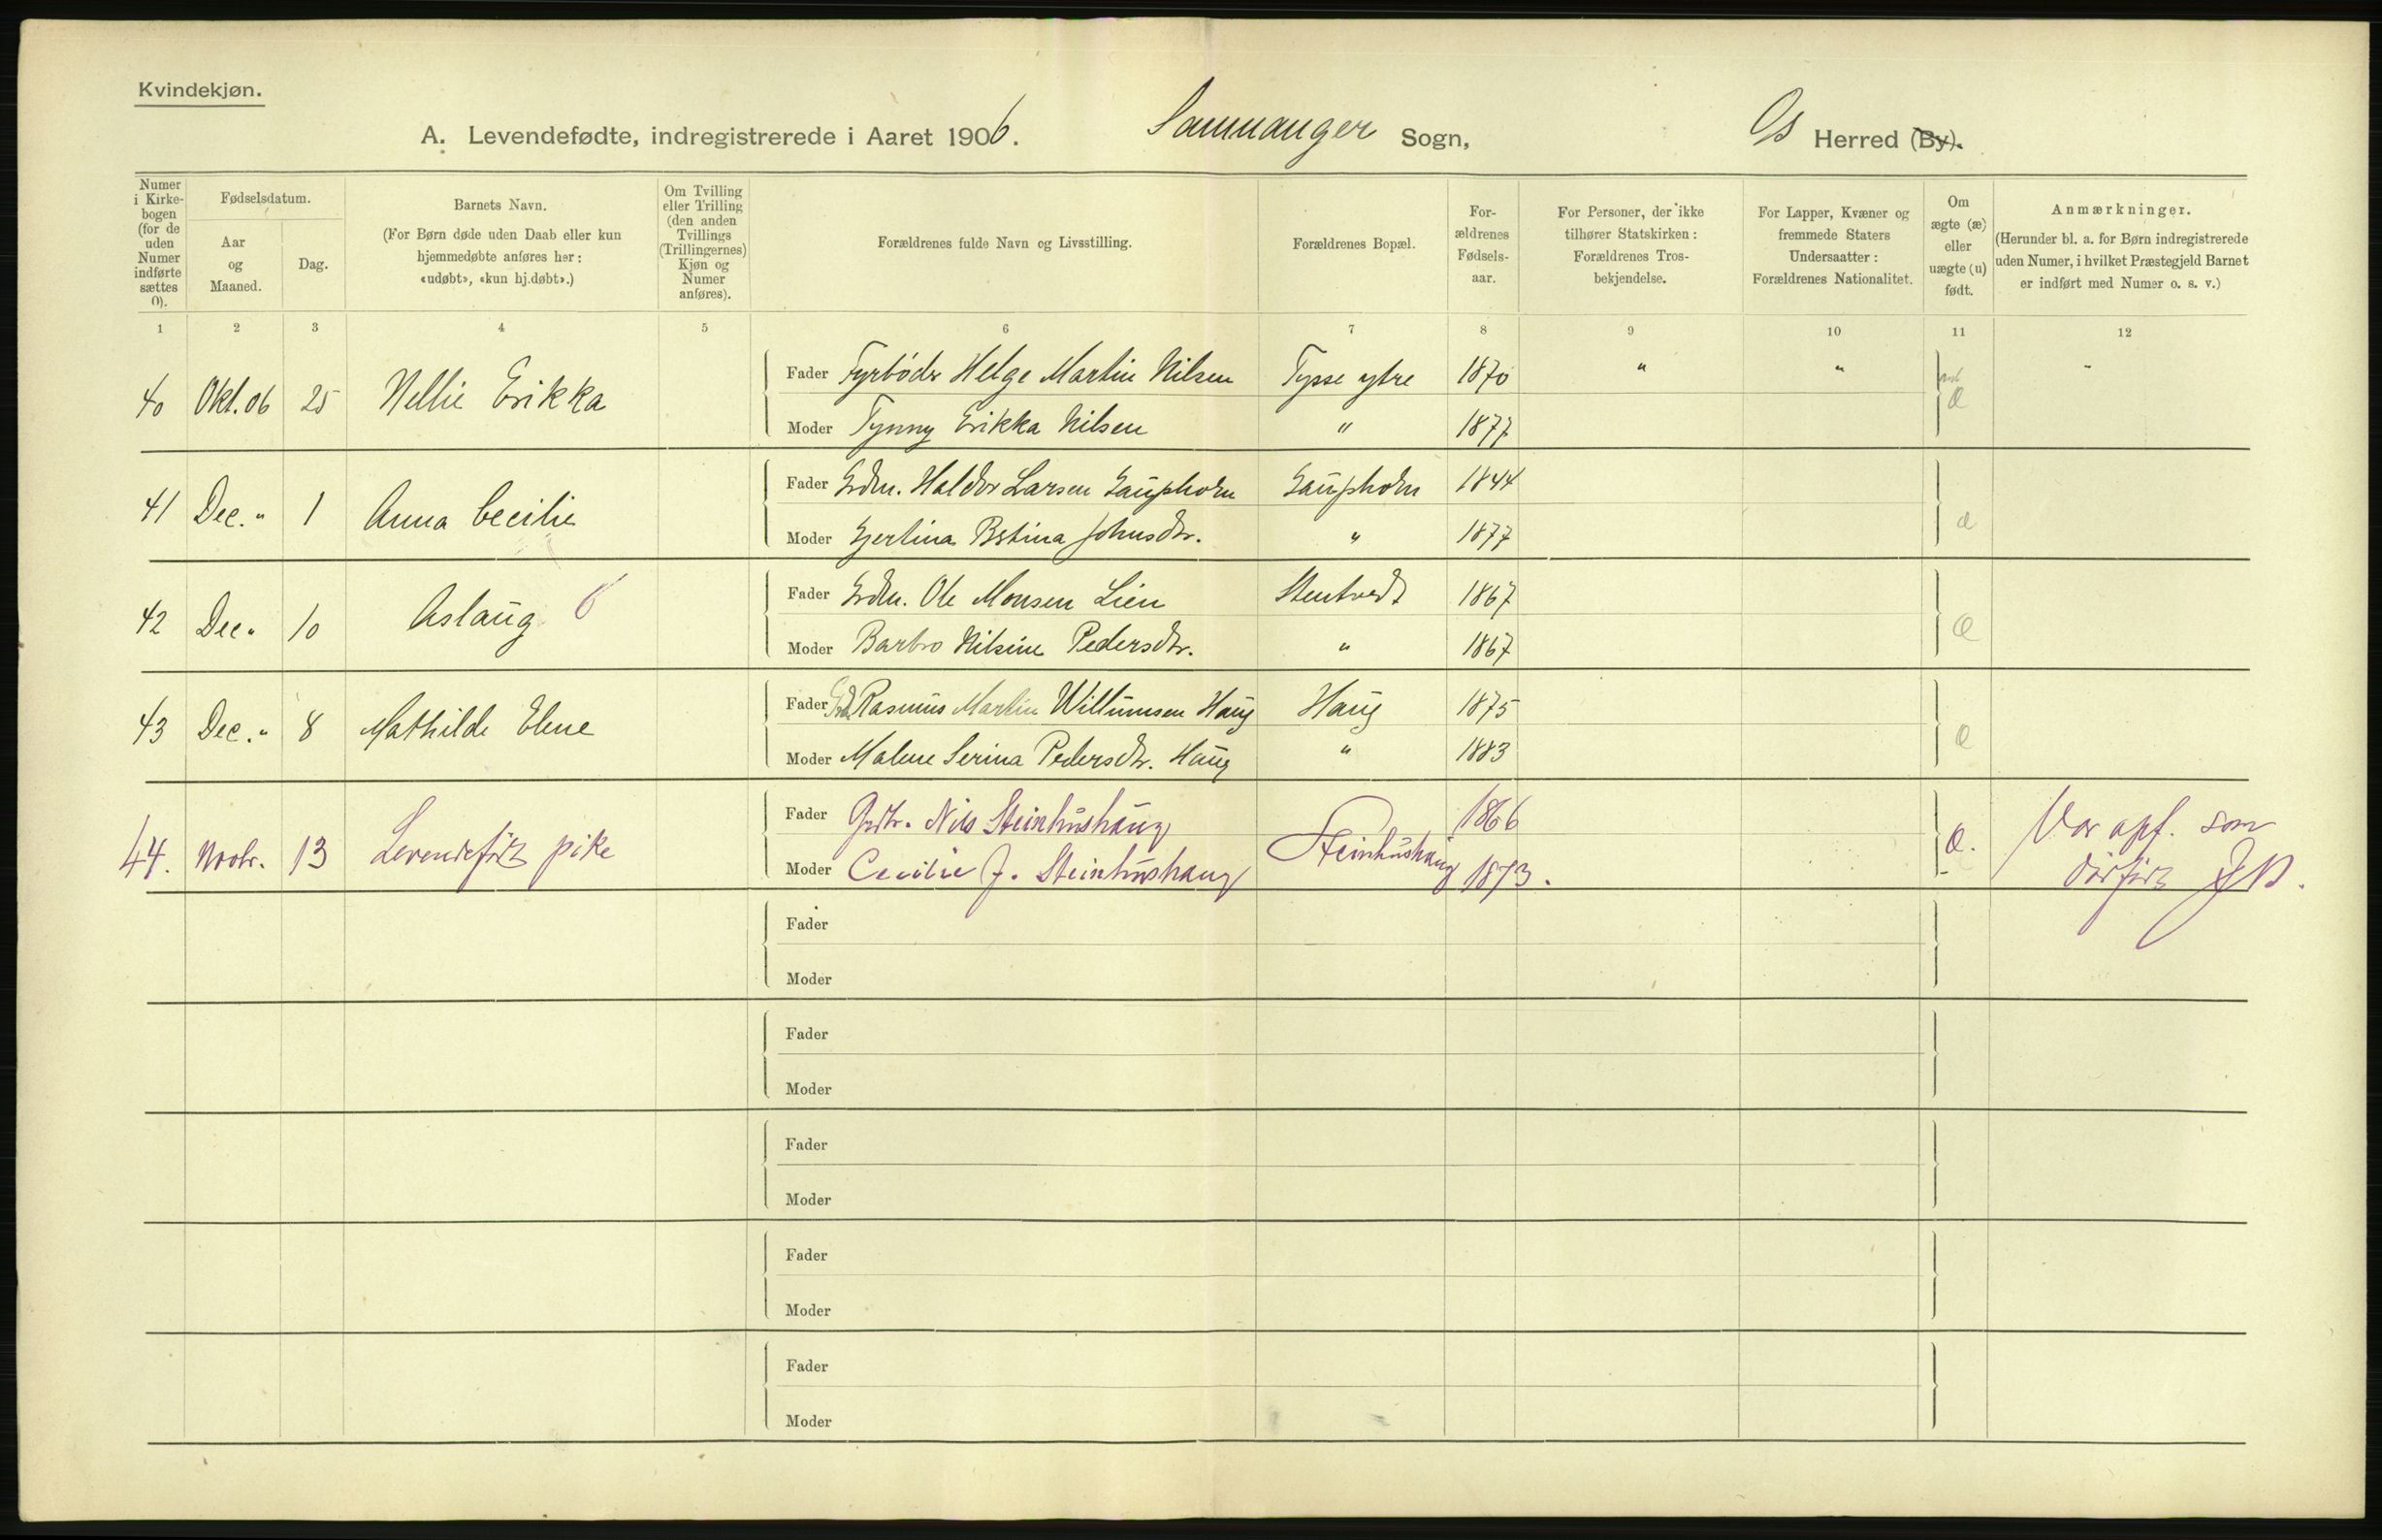 Kvindekjøn.
A. Levendefødte, indregistrerede i Aaret 1906. Sammanger Sogn, Os Herred (By).
Numer i Kirkebogen (for de uden Numer indførte sættes 0).
Fødselsdatum.
Aar og Maaned.
Dag.
Barnets Navn.
(For Børn døde uden Daab eller kun hjemmedøbte anføres her: «udøbt», «kun hj.døbt».)
Om Tvilling eller Trilling (den anden Tvillings (Trillingernes) Kjøn og Numer anføres).
Forældrenes fulde Navn og Livsstilling.
Forældrenes Bopæl.
Forældrenes Fødselsaar.
For Personer, der ikke tilhører Statskirken: Forældrenes Trosbekjendelse.
For Lapper, Kvæner og fremmede Staters Undersaatter: Forældrenes Nationalitet.
Om ægte (æ) eller uægte (u) født.
Anmærkninger.
(Herunder bl. a. for Børn indregistrerede uden Numer, i hvilket Præstegjeld Barnet er indført med Numer o. s. v.)
1 2 3 4 5 6 7 8 9 10 11 12
40 Okt. 06 25 Nellie Erikka Fader Fyrbøder Helge Martin Nilsen Tysse ytre 1870 " " æ "
Moder Fynny Erikka Nilsen " 1877
41 Dec. " 1 Anna Cecilie Fader Grdm. Haldor Larsen Gaupholm Gaupholm 1844 æ
Moder Gjertina Bertina Johnsdtr. " 1877
42 Dec " 10 Aslaug Fader Grdm. Ole Monsen Lien Stentvedt 1867 æ
Moder Barbro Nilsine Pedersdtr. " 1867
43 Dec. " 8 Mathilde Elene Fader Grdm. Rasmus Martin Willumsen Haug Haug 1875 æ
Moder Malene Serina Pedersdtr. Haug " 1883
44. Novbr. 13 Levendefødt pike Fader Grdbr. Nils Steinhushaug Steinhushaug 1866 æ. Var opf. som
Moder Cecilie J. Steinhushaug 1873. dødfødt
Fader
Moder
Fader
Moder
Fader
Moder
Fader
Moder
Fader
Moder